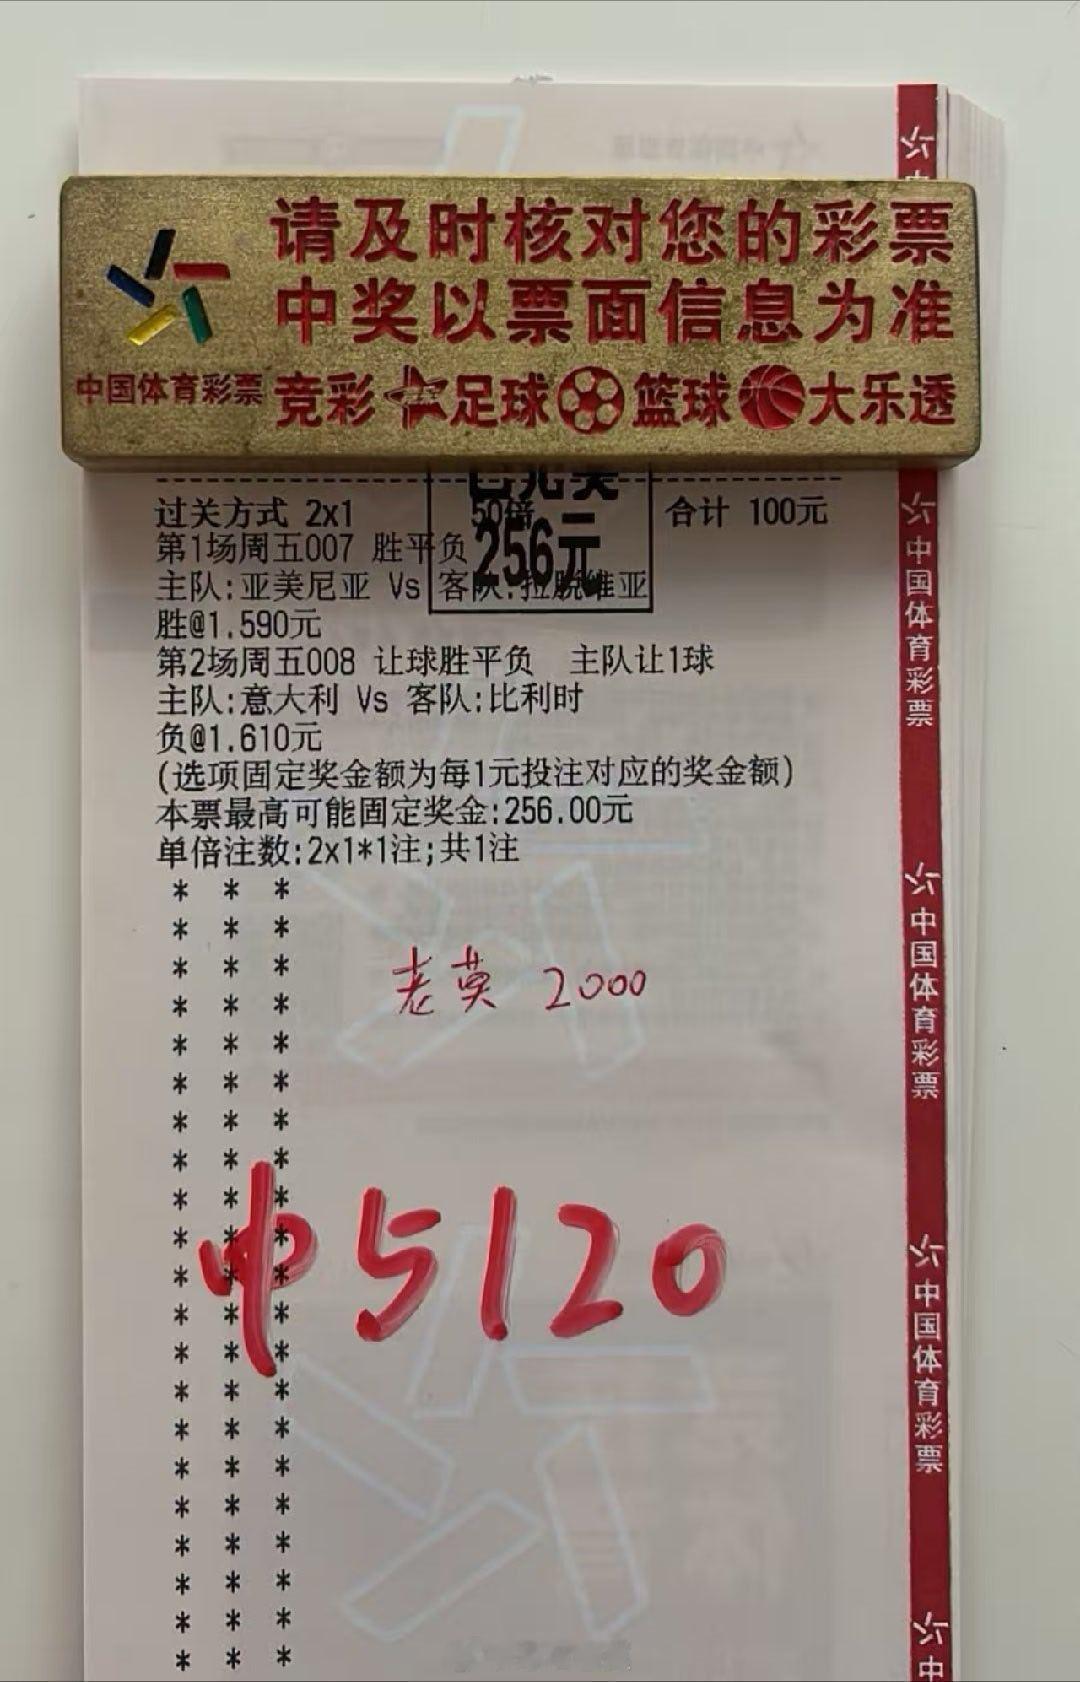 请及时核对您的彩票
中奖以票面信息为准
中国体育彩票 竞彩 足球 篮球 大乐透
已兑奖
256元
过关方式 2x1 50倍 合计 100元
第1场周五007 胜平负
主队:亚美尼亚 Vs 客队:拉脱维亚
胜@1.590元
第2场周五008 让球胜平负 主队让1球
主队:意大利 Vs 客队:比利时
负@1.610元
(选项固定奖金额为每1元投注对应的奖金额)
本票最高可能固定奖金:256.00元
单倍注数:2x1*1注;共1注
* * *
* * *
* * *
* * *
* * *
* * *
* * *
* * *
* * *
* * *
* * *
* * *
* * *
* * *
* * *
* * *
* * *
* * *
* * *
* * *
* * *
老英 2000
中5120
中国体育彩票
中国体育彩票
中国体育彩票
中